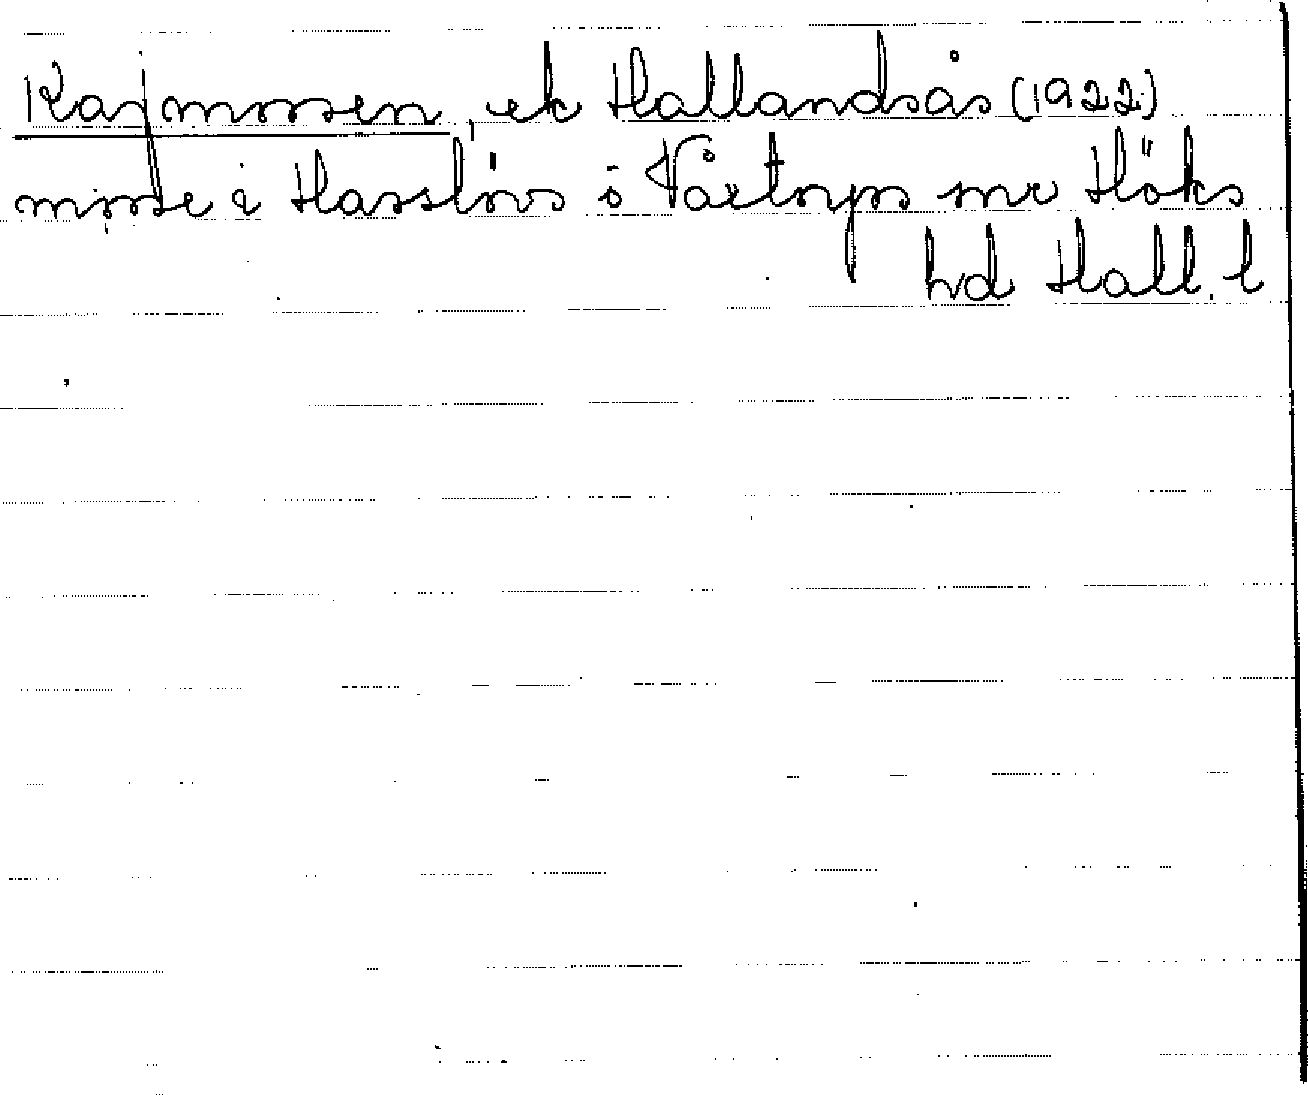 Kajmossen, ek Hallandsås (1922)
mosse i Hasslövs o Våxtorps snr Höks
hd Hall. l